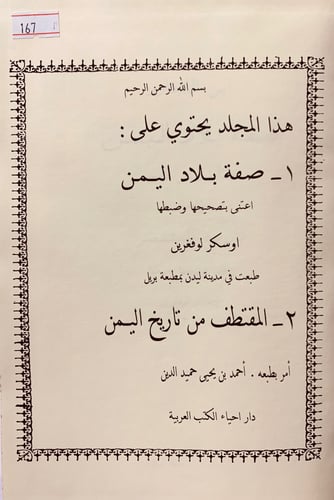 167
بسم الله الرحمن الرحيم
هذا المجلد يحتوي على :
١ـ صفة بلاد اليمن
اعتنى بتصحيحها وضبطها
اوسكر لوفغرين
طبعت في مدينة ليدن بمطبعة بريل
٢ـ المقتطف من تاريخ اليمن
أمر بطبعه . أحمد بن يحيى حميد الدين
دار احياء الكتب العربية